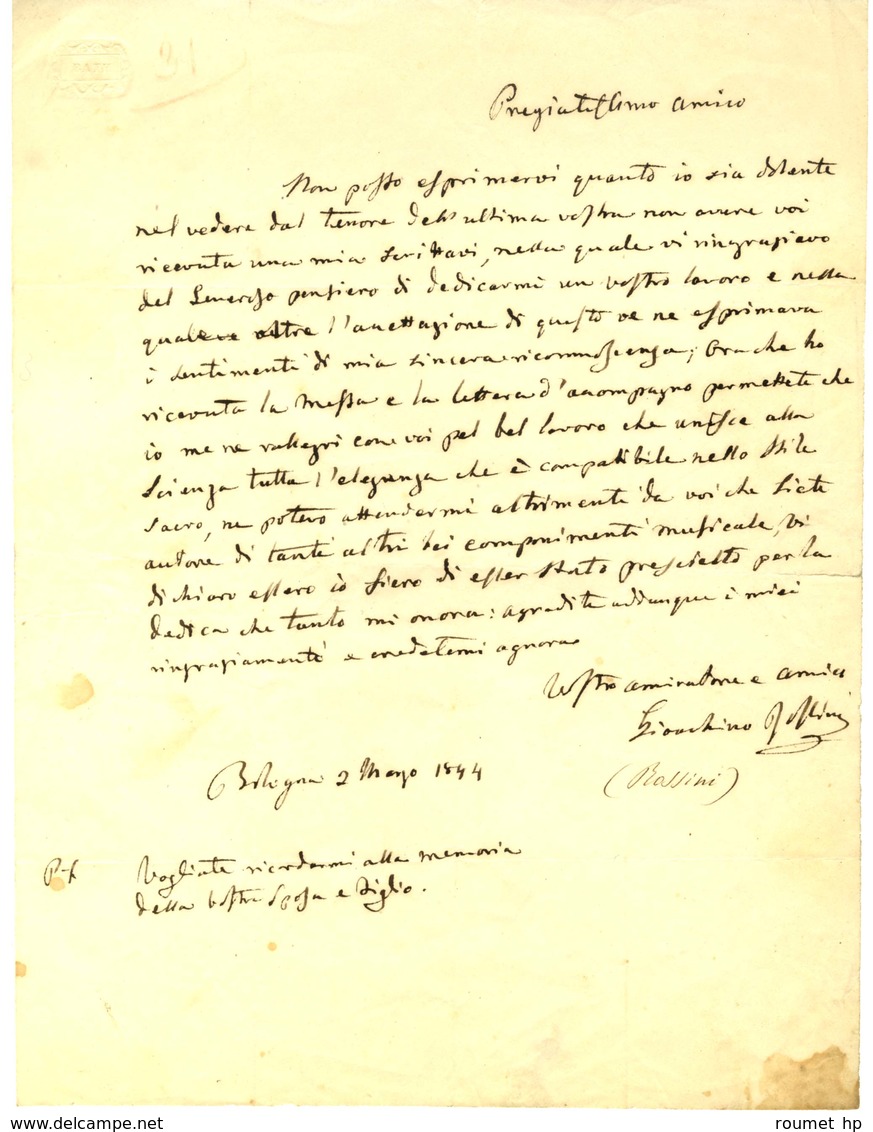 BATH
31
Pregiatissimo amico
Non posso esprimervi quanto io sia dolente
nel vedere dal tenore dell'ultima vostra non avere voi
ricevuta una mia scrittavi, nella quale vi ringraziavo
del pensiero di dedicarmi un vostro lavoro e nella
quale oltre l'accettazione di questo ve ne esprimava
i sentimenti di mia sincera riconnoscenza; Ora che ho
ricevuta la Messa e la lettera d'accompagno permettete che
io me ne rallegri con voi pel bel lavoro che unisce alla
Scienza tutta l'eleganza che è compatibile nello Stile
Sacro, ne potevo attendermi altrimenti da voi che siete
autore di tanti altri bei componimenti musicale, vi
dichiaro essere io fiero di esser stato prescielto per la
dedica che tanto mi onora: agradite addunque i miei
ringraziamenti e credetemi agnora
Vostro amiratore e amico
Gioachino Rossini
Bologna 2 Marzo 1844
(Rossini)
P.S. Vogliate ricordarmi alla memoria
della vostra Sposa e Figlio.
www.delcampe.net
roumet hp